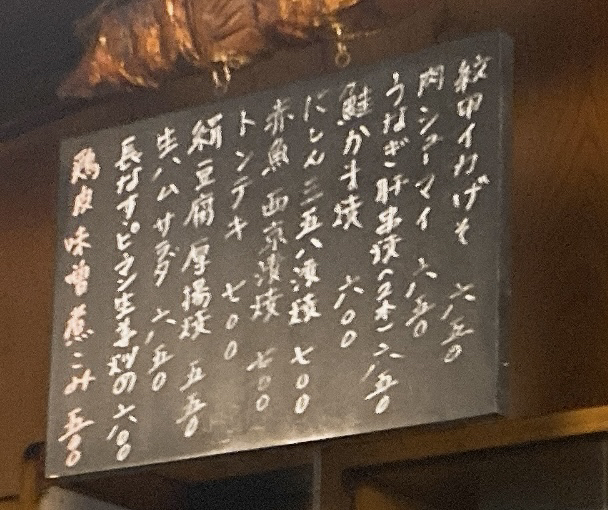 紋甲イカげそ 六五〇
肉シューマイ 六五〇
うなぎ肝串焼(2本) 六五〇
鮭かま焼 六〇〇
にしん三五八漬焼 七〇〇
赤魚西京漬焼 七〇〇
トンテキ 七〇〇
絹豆腐厚揚焼 五五〇
生ハムサラダ 六五〇
長なすピータン生姜 の 六〇〇
鶏皮味噌煮こみ 五五〇